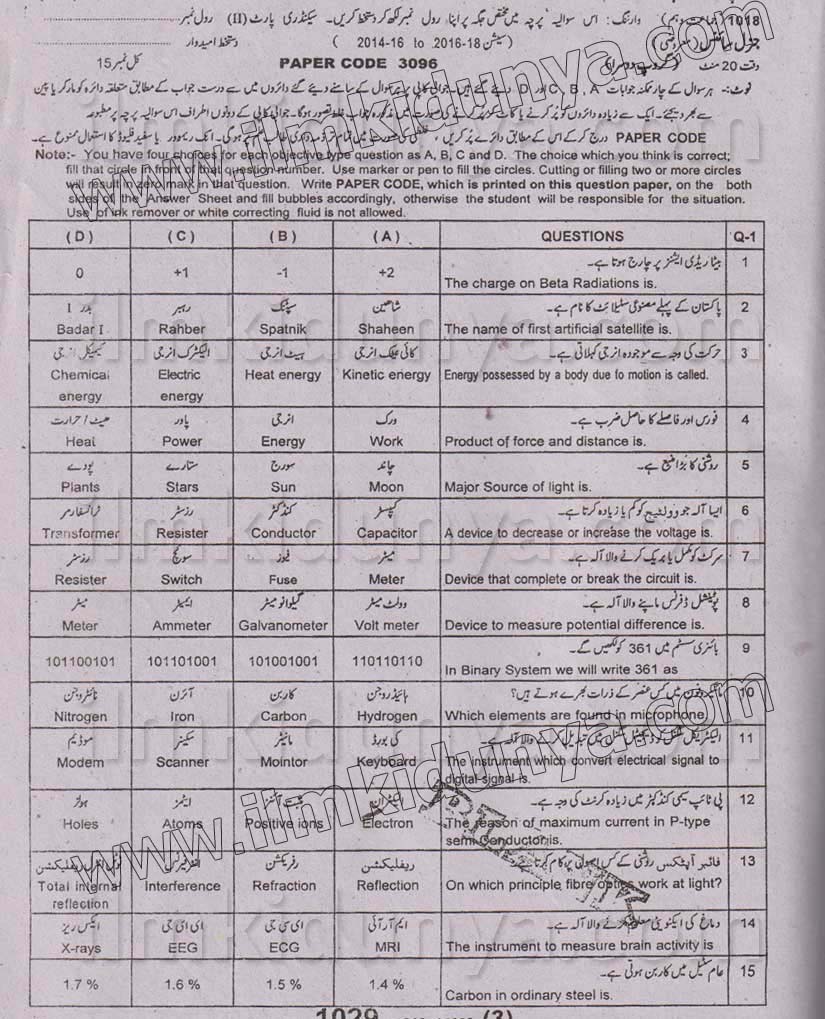 1018 (جماعت دہم) وارننگ: اس سوالیہ پرچہ میں مختص جگہ پر اپنا رول نمبر لکھ کر دستخط کریں۔ سیکنڈری پارٹ (II) رول نمبر
جنرل سائنس (معروضی) (سیشن 18-2016 to 2014-16) دستخط امیدوار
وقت 20 منٹ (گروپ دوسرا) PAPER CODE 3096 کل نمبر 15
نوٹ:- ہر سوال کے چار ممکنہ جوابات A ، B ، C اور D دیئے گئے ہیں۔ جوابی کاپی پر ہر سوال کے سامنے دیئے گئے دائروں میں سے درست جواب کے مطابق متعلقہ دائرہ کو مارکر یا پین
سے بھر دیجئے۔ ایک سے زیادہ دائروں کو پُر کرنے یا کاٹ کر پُر کرنے کی صورت میں مذکورہ جواب غلط تصور ہوگا۔ جوابی کاپی کے دونوں اطراف اس سوالیہ پرچہ پر مطبوعہ
PAPER CODE درج کر کے اس کے مطابق دائرے پُر کریں، غلطی کی صورت میں تمام تر ذمہ داری طالب علم پر ہوگی۔ انک ریموور یا سفید فلیوڈ کا استعمال ممنوع ہے۔
Note:- You have four choices for each objective type question as A, B, C and D. The choice which you think is correct;
fill that circle in front of that question number. Use marker or pen to fill the circles. Cutting or filling two or more circles
will result in zero mark in that question. Write PAPER CODE, which is printed on this question paper, on the both
sides of the Answer Sheet and fill bubbles accordingly, otherwise the student will be responsible for the situation.
Use of ink remover or white correcting fluid is not allowed.
( D ) ( C ) ( B ) ( A ) QUESTIONS Q-1
بیٹا ریڈی ایشنز پر چارج ہوتا ہے۔ 1
0 +1 -1 +2 The charge on Beta Radiations is.
بدر I رہبر سپٹنک شاھین پاکستان کے پہلے مصنوعی سٹیلائٹ کا نام ہے۔ 2
Badar I Rahber Spatnik Shaheen The name of first artificial satellite is.
کیمیکل انرجی الیکٹرک انرجی ہیٹ انرجی کائی نیٹک انرجی حرکت کی وجہ سے موجودہ انرجی کہلاتی ہے۔ 3
Chemical energy Electric energy Heat energy Kinetic energy Energy possessed by a body due to motion is called.
ہیٹ / حرارت پاور انرجی ورک فورس اور فاصلے کا حاصل ضرب ہے۔ 4
Heat Power Energy Work Product of force and distance is.
پودے ستارے سورج چاند روشنی کا بڑا منبع ہے۔ 5
Plants Stars Sun Moon Major Source of light is.
ٹرانسفارمر رزسٹر کنڈکٹر کپیسٹر ایسا آلہ جو وولٹیج کو کم یا زیادہ کرتا ہے۔ 6
Transformer Resister Conductor Capacitor A device to decrease or increase the voltage is.
رزسٹر سوئچ فیوز میٹر سرکٹ کو مکمل یا بریک کرنے والا آلہ ہے۔ 7
Resister Switch Fuse Meter Device that complete or break the circuit is.
میٹر ایمیٹر گیلوانومیٹر وولٹ میٹر پوٹینشل ڈفرنس ماپنے والا آلہ ہے۔ 8
Meter Ammeter Galvanometer Volt meter Device to measure potential difference is.
بائنری سسٹم میں 361 کو لکھیں گے۔ 9
101100101 101101001 101001001 110110110 In Binary System we will write 361 as
نائٹروجن آئرن کاربن ہائیڈروجن مائیکروفون میں کس عنصر کے ذرات بھرے ہوتے ہیں؟ 10
Nitrogen Iron Carbon Hydrogen Which elements are found in microphone
موڈیم سکینر مانیٹر کی بورڈ الیکٹریکل سگنل کو ڈیجیٹل سگنل میں تبدیل کرنے والا آلہ ہے۔ 11
Modem Scanner Mointor Keyboard The instrument which convert electrical signal to
digital signal is.
ہولز ایٹمز مثبت آئنز الیکٹران پی ٹائپ سیمی کنڈکٹر میں زیادہ کرنٹ کی وجہ ہے۔ 12
Holes Atoms Positive ions Electron The reason of maximum current in P-type
semi Conductor is.
ٹوٹل انٹرنل ریفلیکشن انٹرفیرنس رفریکشن ریفلیکشن فائبر آپٹکس روشنی کے کس اصول پر کام کرتا ہے۔ 13
Total internal reflection Interference Refraction Reflection On which principle fibre optics work at light?
ایکس ریز ای ای جی ای سی جی ایم آر آئی دماغ کی ایکٹیویٹی معلوم کرنے والا آلہ ہے۔ 14
X-rays EEG ECG MRI The instrument to measure brain activity is
عام سٹیل میں کاربن ہوتی ہے۔ 15
1.7 % 1.6 % 1.5 % 1.4 % Carbon in ordinary steel is.
1029 (3)
www.ilmkidunya.com
www.ilmkidunya.com
ilmkidunya.com